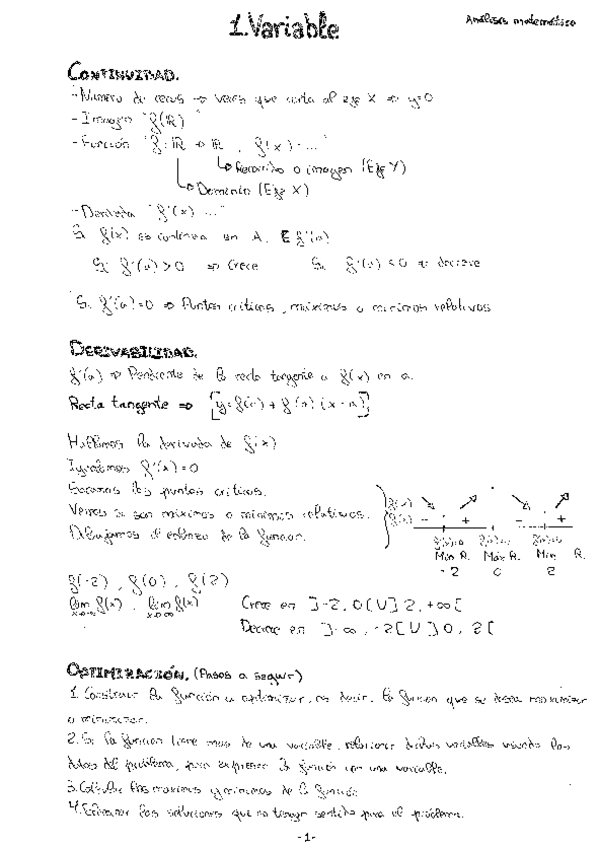 Análisis matemático
1.Variable
CONTINUIDAD.
- Número de ceros → veces que corta al eje X ⇒ y=0
- Imagen "f(ℝ)"
- Función "f: ℝ → ℝ, f(x)=..."
↳ Recorrido o imagen (Eje Y)
↳ Dominio (Eje X)
- Derivada "f'(x)..."
Si f(x) es continua en A, ∃ f'(a)
Si f'(a) > 0 ⇒ Crece Si f'(a) < 0 ⇒ decrece
Si f'(a)=0 ⇒ Puntos críticos, máximos o mínimos relativos
DERIVABILIDAD.
f'(a) ⇒ Pendiente de la recta tangente a f(x) en a.
Recta tangente ⇒ [y=f(a)+f'(a)(x-a)]
Hallamos la derivada de f(x)
Igualamos f'(x)=0
Sacamos los puntos críticos.
Vemos si son máximos o mínimos relativos.
Dibujamos el esbozo de la función.
f(x) ↘ ↗ ↘ ↗
f'(x) - + - +
Min R. Máx R. Min R.
-2 0 2
f(-2), f(0), f(2)
lim f(x), lim f(x) Crece en ]-2,0[ U ]2,+∞[
Decrece en ]-∞,-2[ U ]0,2[
OPTIMIZACIÓN. (Pasos a seguir)
1. Construir la función a optimizar, es decir, la función que se desea maximizar
o minimizar.
2. Si la función tiene mas de una variable, relacionar dichas variables usando los
datos del problema, para expresar la función con una variable.
3. Calcular los maximos y minimos de la función
4. Eliminar las soluciones que no tengan sentido para el problema.
-1-